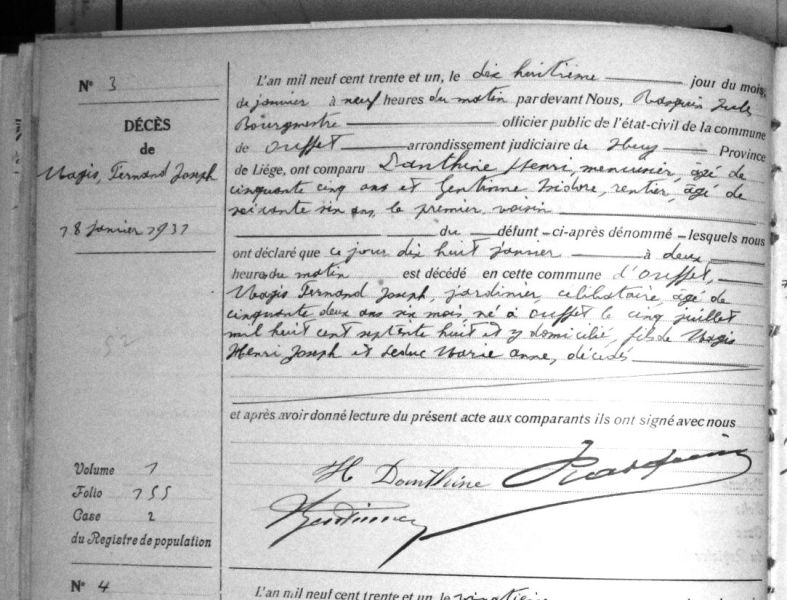 N° 3
DÉCÈS
de
Magis, Fernand Joseph
18 Janvier 1931
52
Volume 1
Folio 155
Case 2
du Registre de population
L'an mil neuf cent trente et un, le dix huitième jour du mois,
de janvier à neuf heures du matin par devant Nous, Rasquin Jules
Bourgmestre officier public de l'état-civil de la commune
de Ouffet arrondissement judiciaire de Huy Province
de Liége, ont comparu Danthine Henri, menuisier, âgé de
cinquante cinq ans et Gentinne Isidore, rentier, âgé de
soixante six ans, le premier voisin
du défunt - ci-après dénommé - lesquels nous
ont déclaré que ce jour dix huit janvier à deux
heures du matin est décédé en cette commune d'Ouffet,
Magis Fernand Joseph, jardinier, célibataire, âgé de
cinquante deux ans six mois, né à Ouffet le cinq juillet
mil huit cent septante huit et y domicilié, fils de Magis
Henri Joseph et Leduc Marie Anne, décédés
et après avoir donné lecture du présent acte aux comparants ils ont signé avec nous
H Danthine Rasquin
Gentinne
N° 4
L'an mil neuf cent trente et un, le vingtième